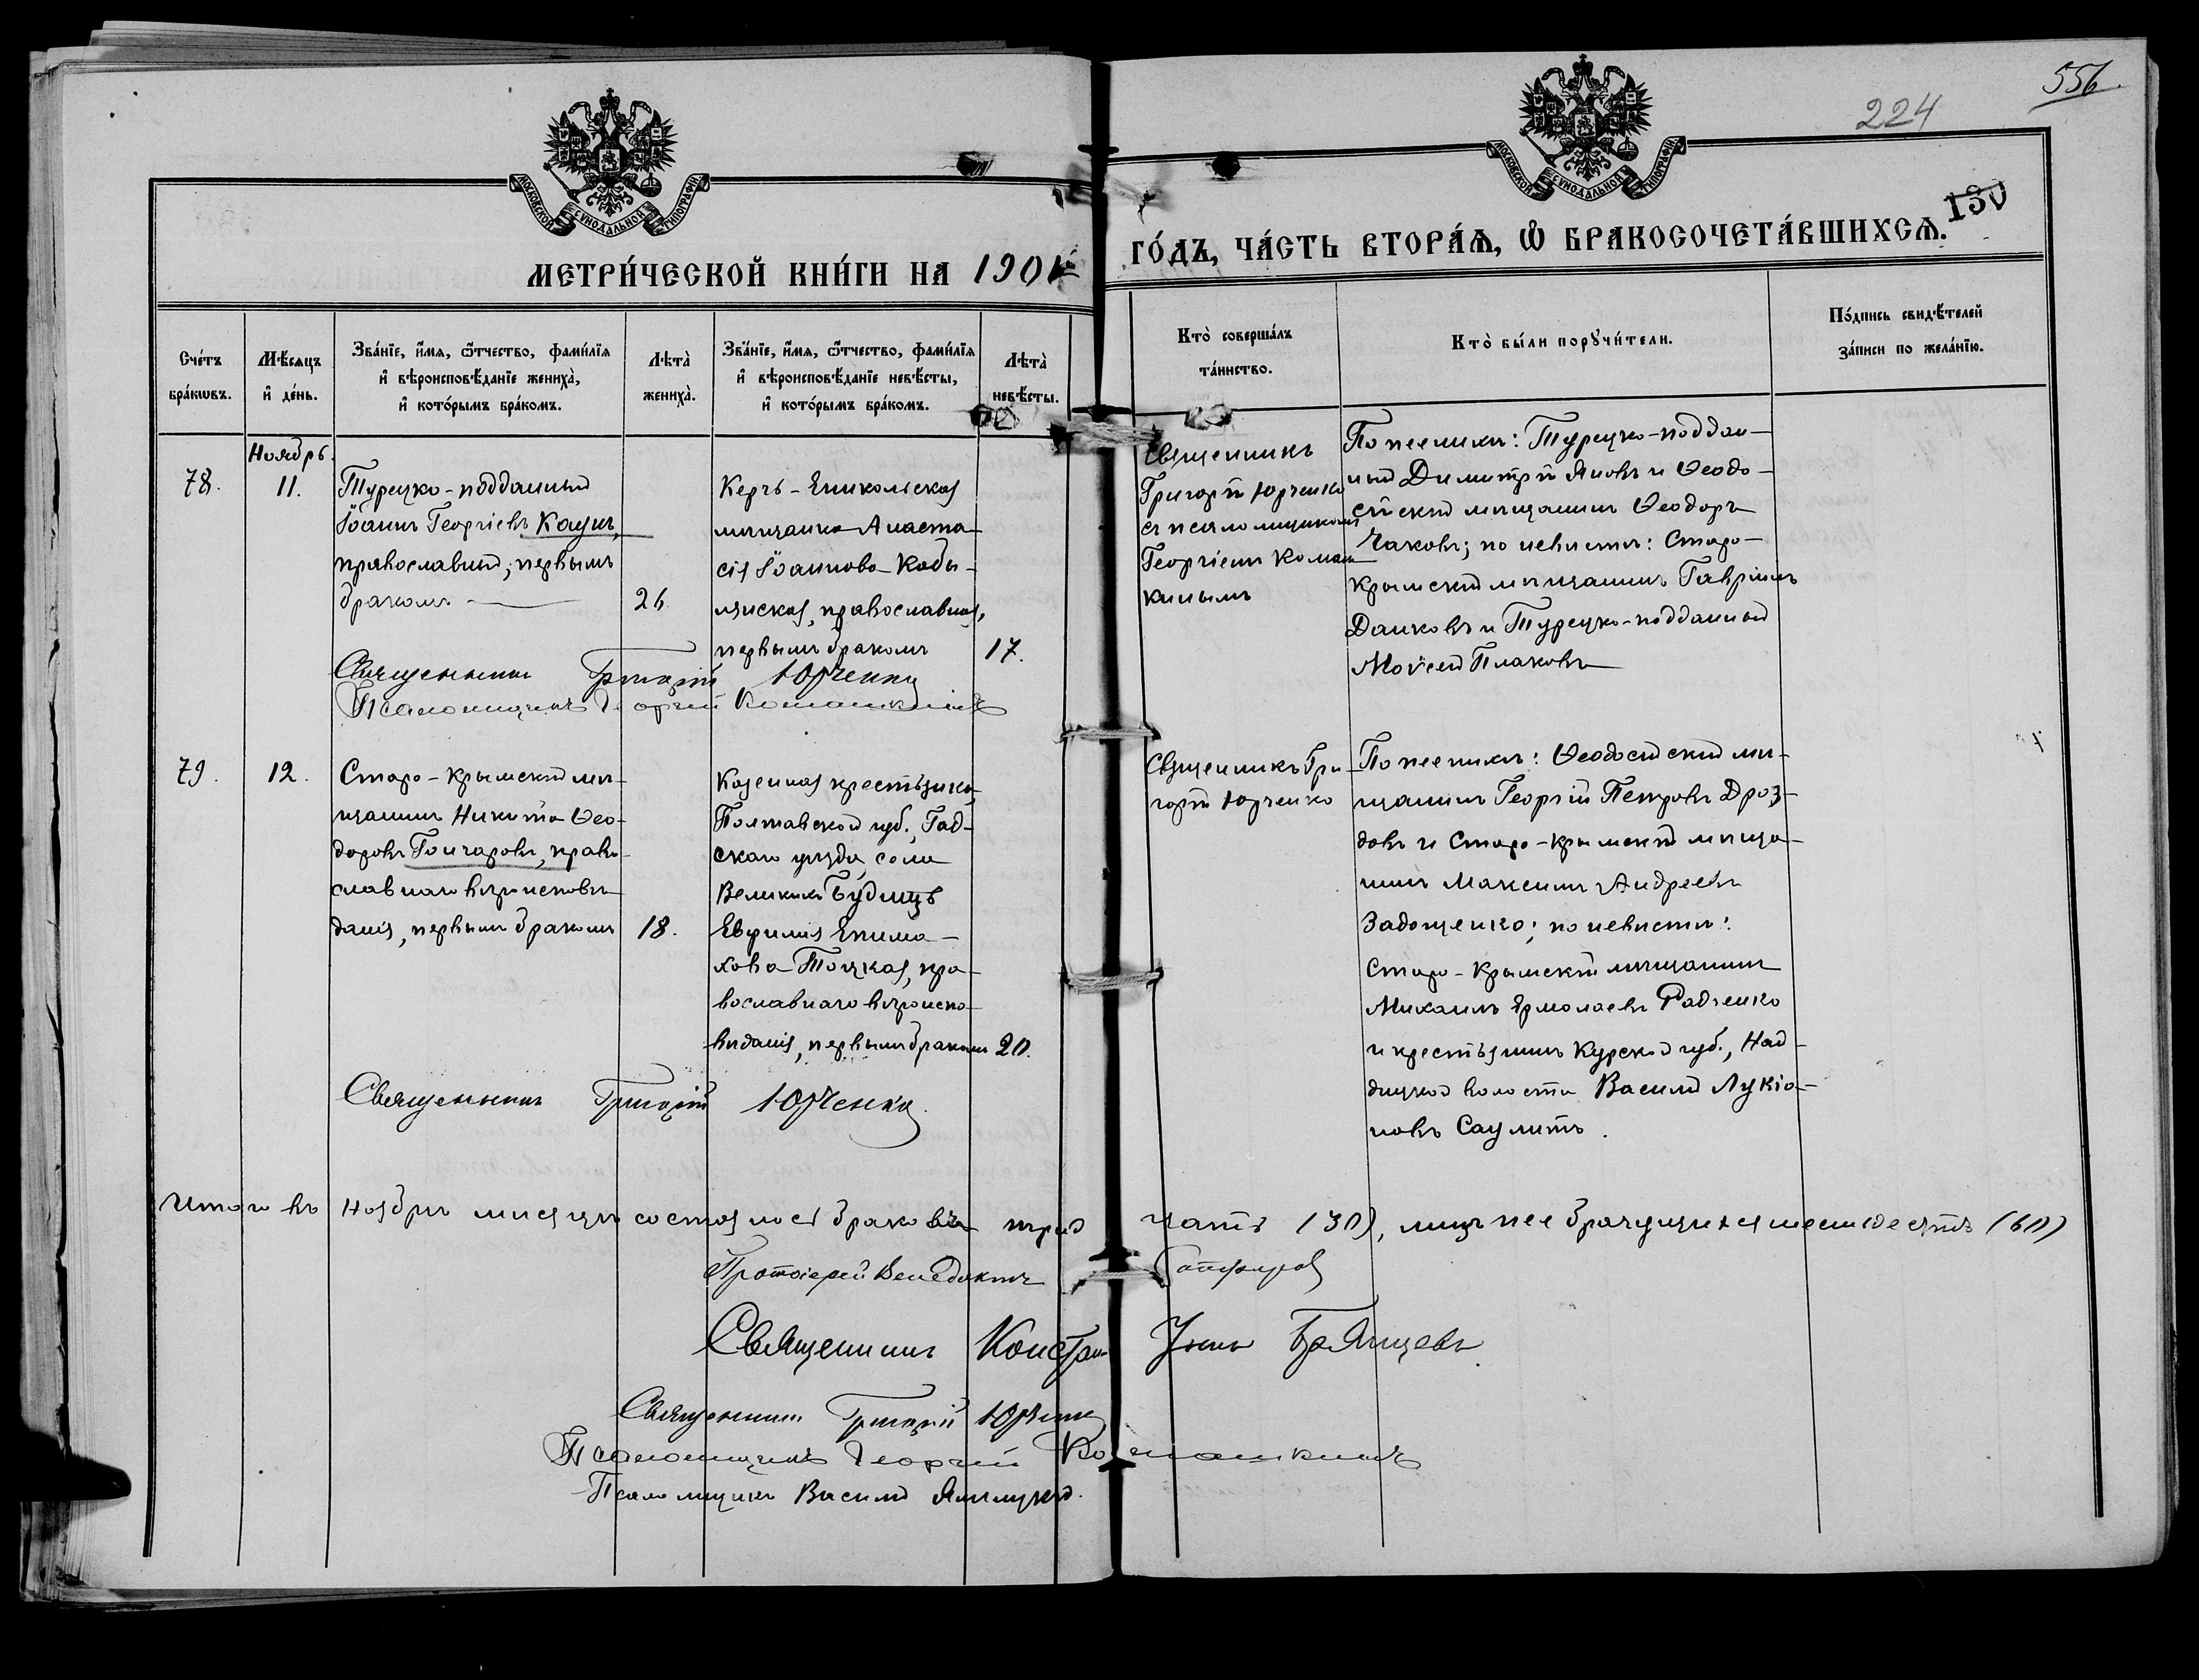 556.
224
130
МОСКОВСКОЙ СѴНОДАЛЬНОЙ ТИПОГРАФІИ
МОСКОВСКОЙ СѴНОДАЛЬНОЙ ТИПОГРАФІИ
МЕТРИ́ЧЕСКОЙ КНИ́ГИ НА 1901 ГО́ДЪ, ЧА́СТЬ ВТОРА́Ѧ, Ѡ҆ БРАКОСОЧЕТА́ВШИХСѦ.
Сче́тъ
бра́кѡвъ.
Мѣ́сяцъ
и҆ де́нь.
Зва́нїе, и҆́мѧ, ѻ҆́тчество, фами́лїѧ
и҆ вѣроисповѣ́данїе жениха̀,
и҆ кото́рымъ бра́комъ.
Лѣта̀
жениха̀.
Зва́нїе, и҆́мѧ, ѻ҆́тчество, фами́лїѧ
и҆ вѣроисповѣ́данїе невѣ́сты,
и҆ кото́рымъ бра́комъ.
Лѣта̀
невѣ́сты.
Кто̀ соверша́лъ
та́инство.
Кто̀ бы́ли порꙋчи́тели.
По́дпись свидѣ́телей
за́писи по жела́нїю.
Ноябрь.
78.
11.
Турецко-подданный
Іоаннъ Георгіевъ Кацин,
православный, первымъ
бракомъ
26
Керчь-Еникольская
мѣщанка Анаста-
сія Іоаннова Кобы-
лянская, православная,
первымъ бракомъ
17.
Священникъ
Григорій Юрченко
съ псаломщикомъ
Георгіемъ Комаш
кинымъ
По женихѣ: Турецко-поддан-
ный Димитрій Яновъ и Ѳеодо-
сійскій мѣщанинъ Ѳеодоръ
Чаковъ; по невѣстѣ: Старо-
Крымскій мѣщанинъ Гавріилъ
Данковъ и Турецко-подданный
Моисей Плаковъ
Священникъ Григорій Юрченко
Псаломщикъ Георгій Комашкинъ
79.
12.
Старо-Крымскій мѣ-
щанинъ Никита Ѳео-
доровъ Гончаровъ, право-
славнаго вѣроисповѣ
данія, первымъ бракомъ
18.
Казенная крестьянка
Полтавской губ., Гад-
скаго уѣзда, села
Великихъ Будищъ
Евфимія Епима-
хова Тоцкая, пра-
вославнаго вѣроиспо-
вѣданія, первымъ бракомъ
20.
Священникъ Гри-
горій Юрченко
По женихѣ: Ѳеодосійскій мѣ-
щанинъ Георгій Петровъ Дроз-
довъ и Старо-Крымскій мѣща-
нинъ Максимъ Андреевъ
Задощенко; по невѣстѣ:
Старо-Крымскій мѣщанинъ
Михаилъ Ермолаевъ Радченко
и крестьянинъ Курской губ., Над-
ицкой волости Василій Лукіа-
новъ
Священникъ Григорій Юрченко.
Итого въ Ноябрѣ мѣсяцѣ состоялось браковъ тридцать (30), лицъ же брачущихся шестьдесятъ (60)
Протоіерей Венедиктъ
Священникъ Константинъ Брянцевъ
Священникъ Григорій Юрченко
Псаломщикъ Георгій Комашкинъ
Псаломщикъ Василій